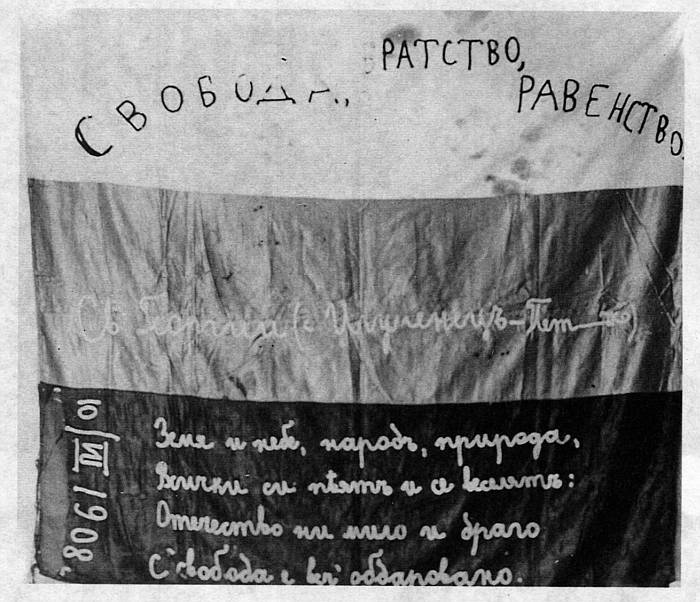 СВОБОДА, РАТСТВО, РАВЕНСТВО.
Св Георгий
10/VII 1908
Земя и небе, народъ, природа,
Всички си пѣятъ и се веселятъ:
Отечество ни мило и драго
С' свобода е веч' обдаровано.